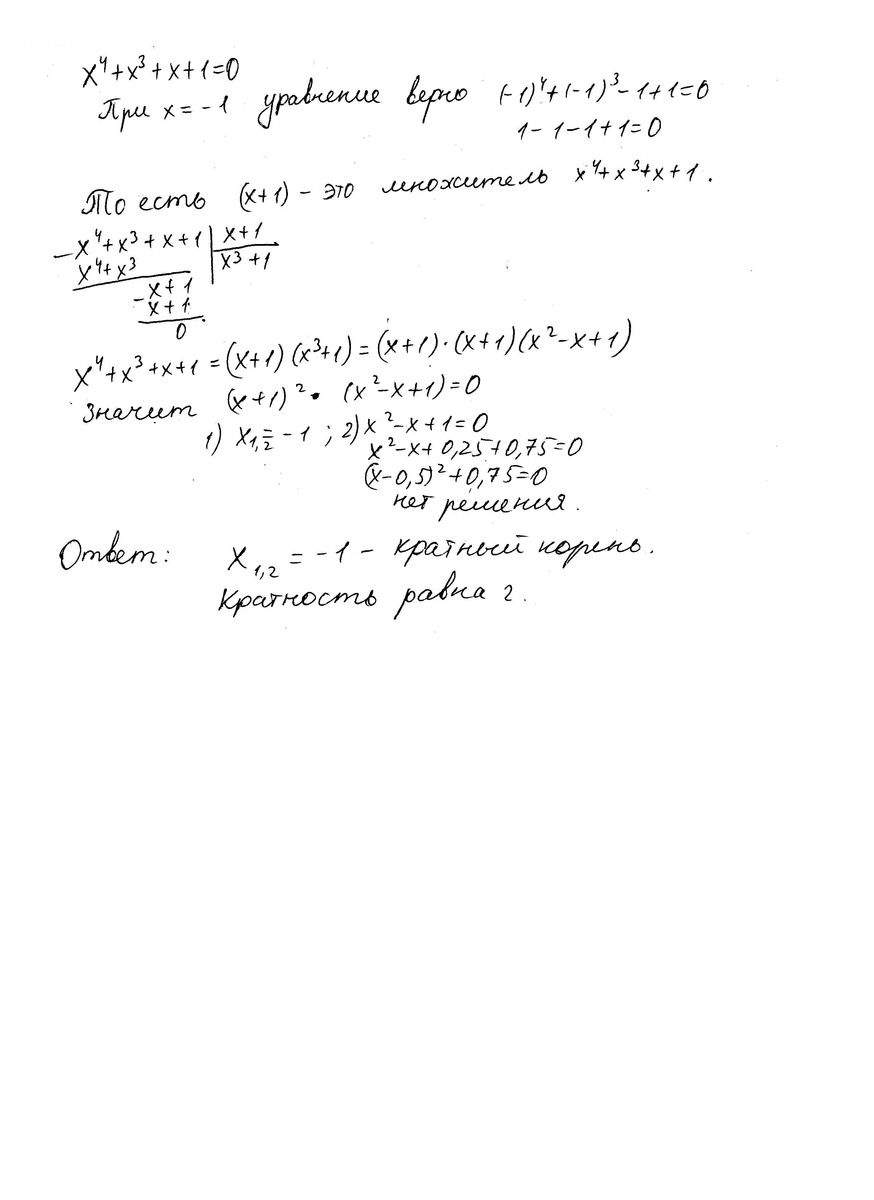 x⁴+x³+x+1=0
При x = -1 уравнение верно (-1)⁴+(-1)³-1+1=0
1-1-1+1=0
То есть (x+1) - это множитель x⁴+x³+x+1.
-x⁴+x³+x+1 | x+1
x⁴+x³ | x³+1
x+1
-x+1
0
x⁴+x³+x+1=(x+1)(x³+1)=(x+1)·(x+1)(x²-x+1)
Значит (x+1)²·(x²-x+1)=0
1) x₁,₂=-1; 2) x²-x+1=0
x²-x+0,25+0,75=0
(x-0,5)²+0,75=0
нет решения.
Ответ: x₁,₂ = -1 - кратный корень.
Кратность равна 2.